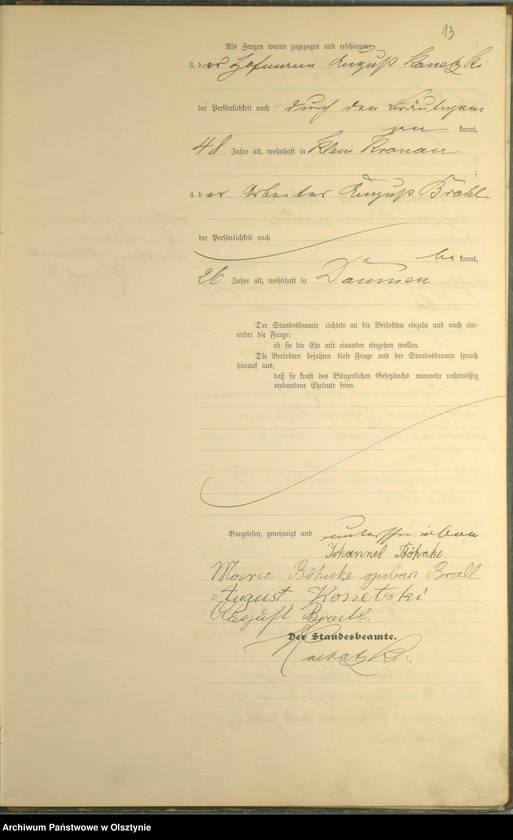 13
Als Zeugen waren zugezogen und erschienen:
3. der Hofmann August
der Persönlichkeit nach durch den Bräutigam
kannt,
48 Jahre alt, wohnhaft in Klein Kronau
;
4. der Arbeiter August Brahl
der Persönlichkeit nach
be kannt,
26 Jahre alt, wohnhaft in Däumen
Der Standesbeamte richtete an die Verlobten einzeln und nach ein-
ander die Frage:
ob sie die Ehe mit einander eingehen wollen.
Die Verlobten bejahten diese Frage und der Standesbeamte sprach
hierauf aus,
daß sie kraft des Bürgerlichen Gesetzbuchs nunmehr rechtmäßig
verbundene Eheleute seien.
Vorgelesen, genehmigt und unterschrieben
Johannes Böhnke
Maria Böhnke geborne Brall
August Kossetzki
August Brall.
Der Standesbeamte.
Archiwum Państwowe w Olsztynie